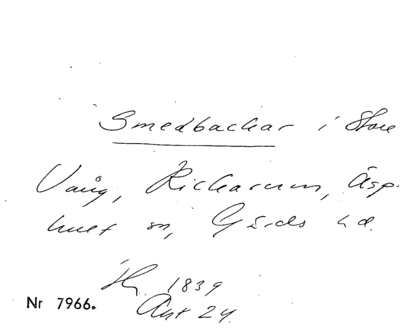 Smedbackar i Store
Vång, Rickarum, Äsp-
huet sn, Gärds hd.
1839
Akt 24.
Nr 7966.